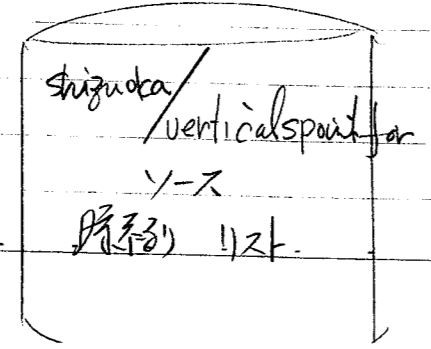 shizuoka/
verticalspointfor
ソース
時系列 リスト